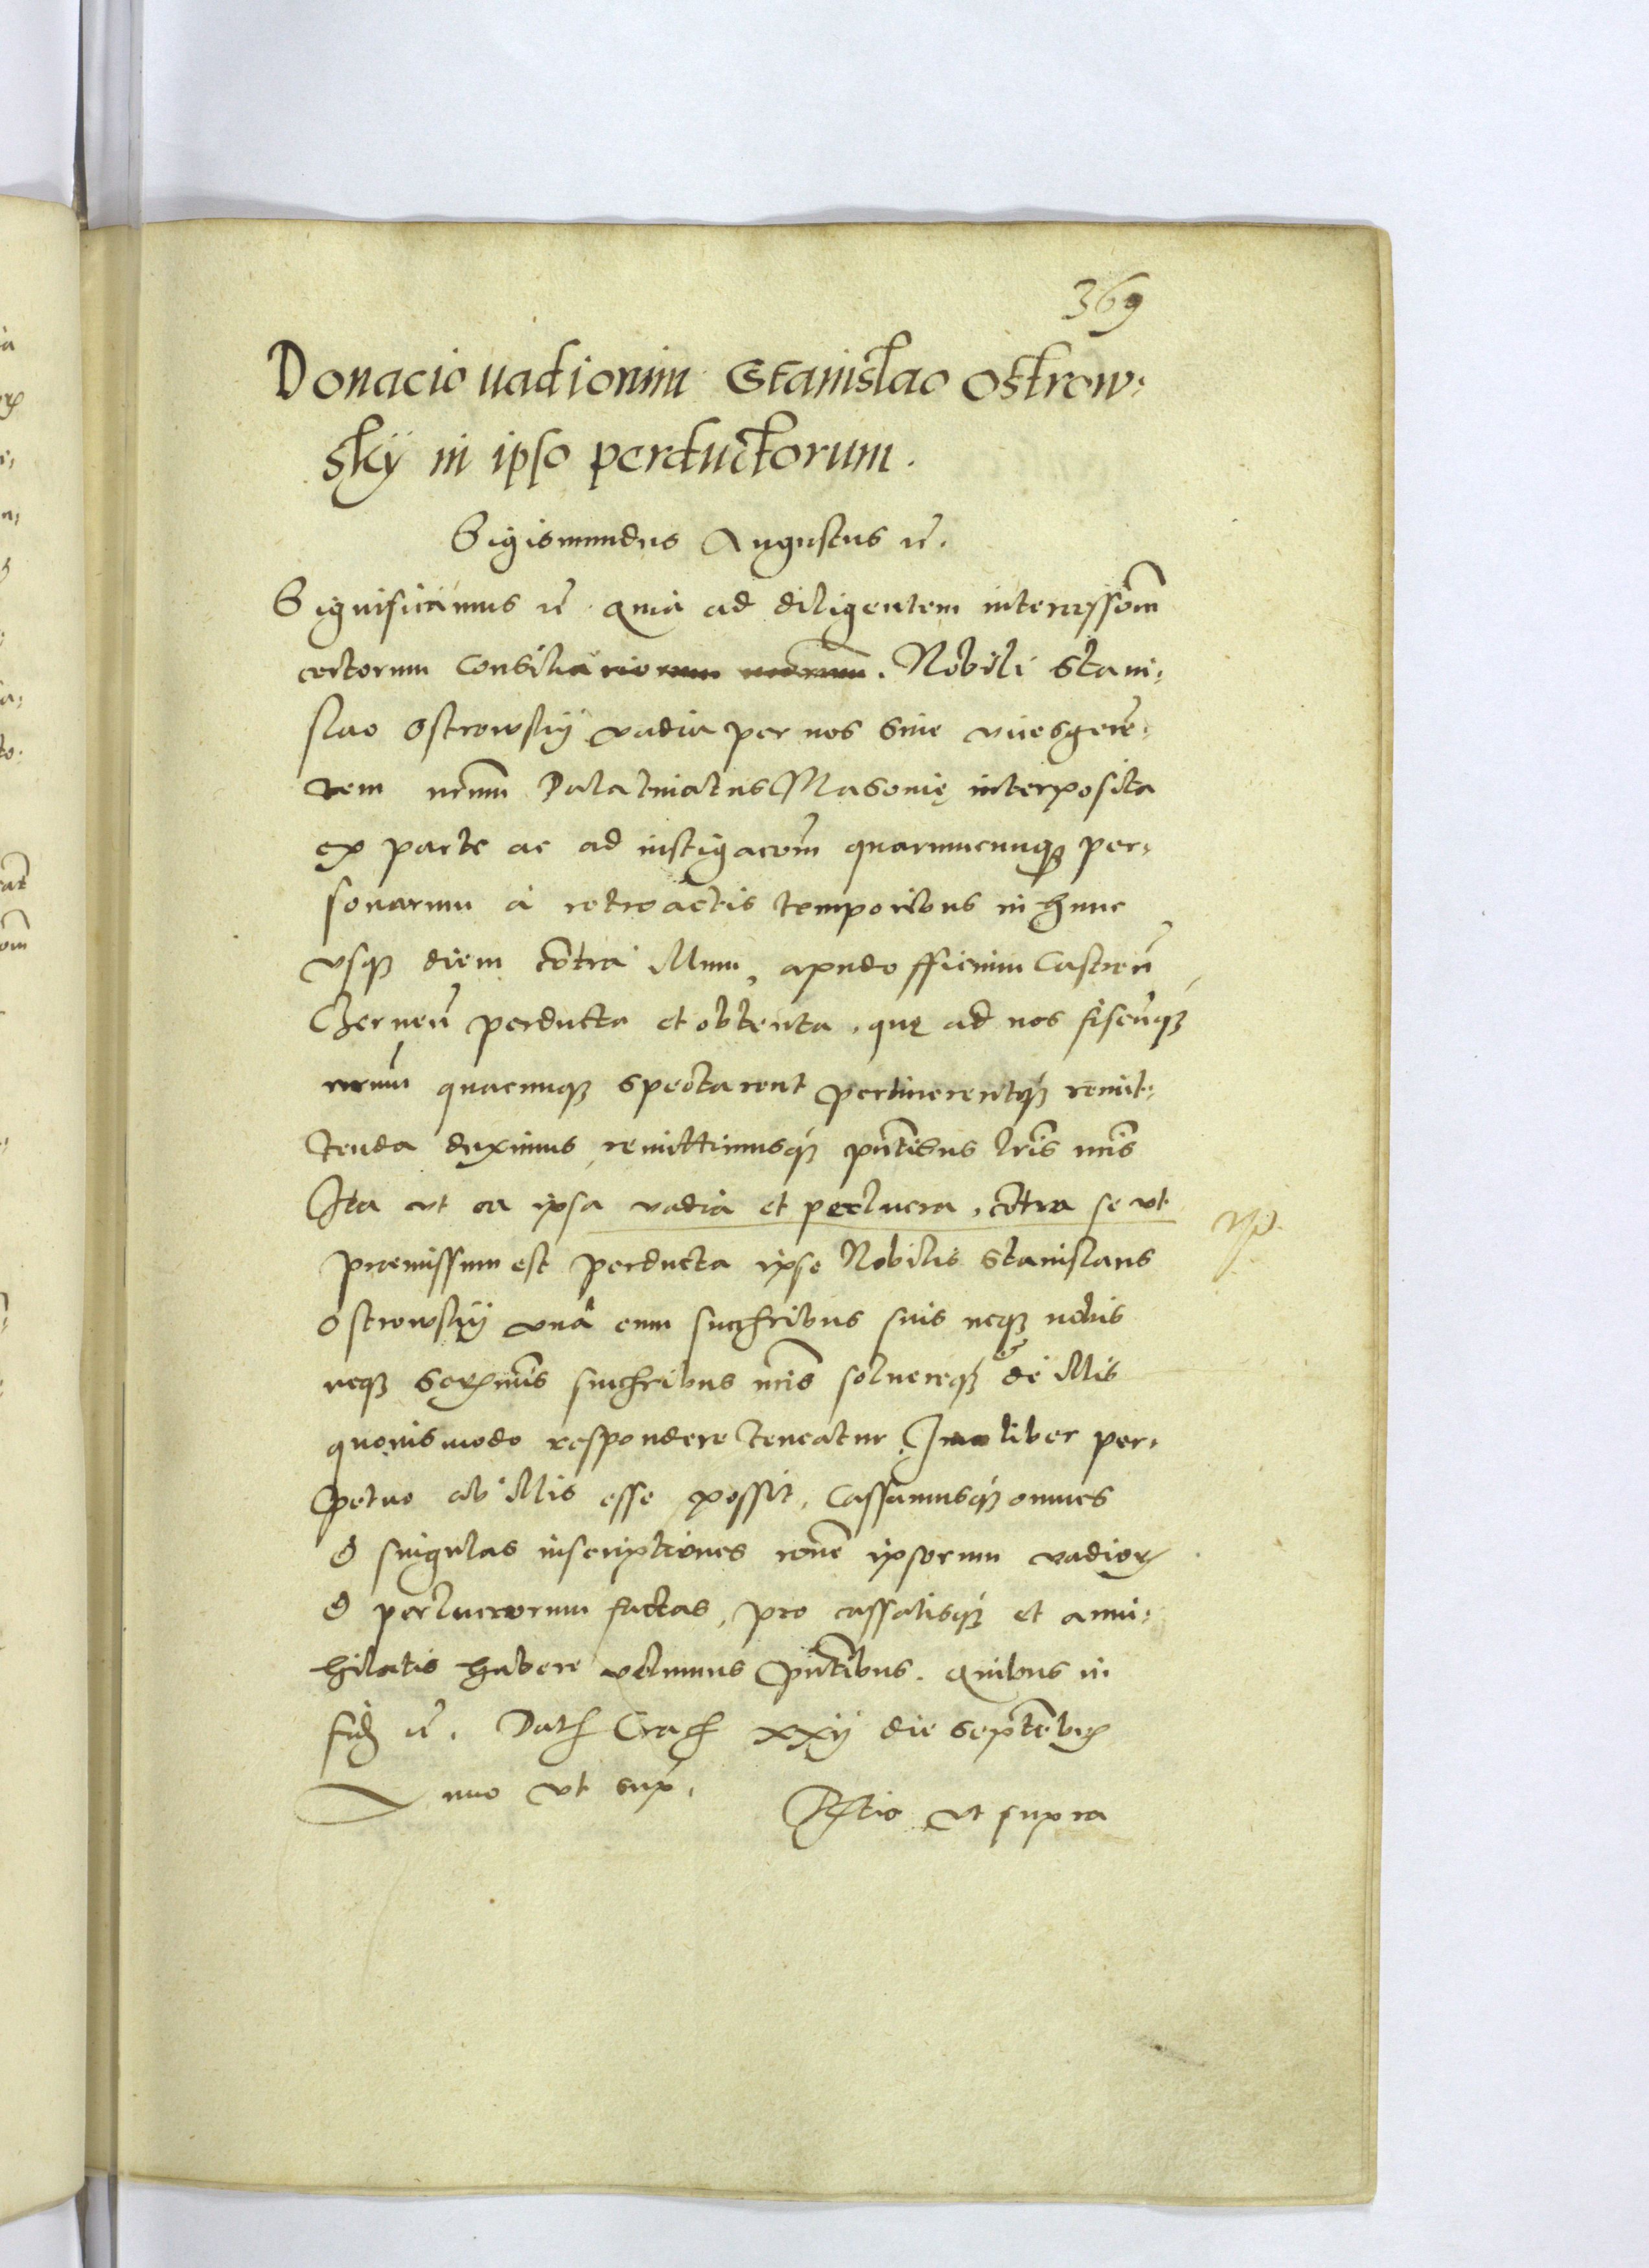 369
Donacio uadiorum Stanislao Ostrow-
sky in ipso perductorum.
Sigismundus Augustus rc̄.
Significamus rc̄ quia ad diligentem intercessiom̄
certorum Consiliariorum nr̄orum. Nobili Stani-
slao Ostrowsky vadia per nos siue vicesgerē-
tem nrm̄ Palatinatus Masouię interposita
ex parte ac ad instigacom̄ quarumcunq3 per-
sonarum á retroactis temporibus in hunc
vsq3 diem cōtra illum, apud officium Castren̄
Chernen̄ perducta et obtenta, quę ad nos fiscūq3
nrm̄ quacunq3 spectarent pertinerentq3 remit-
tenda duximus, remittimusq3 pn̄tibus lrīs nrīs
Ita vt ea ipsa vadia et perlucra, cōtra se vt
praemissum est perducta ipse Nobilis Stanislaus
Ostrowsky vnâ cum succribus suis neq3 nobis
neq3 Sermīs succribus nrīs soluereq3 & de illis
quouismodo respondere teneatur Imo liber per-
petuo ab illis esse possit, Cassamusq3 omnes
& singulas inscriptiones roñe ipsorum vadior
& perlucrorum factas, pro cassatisq3 et anni-
hilatis habere volumus pn̄tibus. Quibus in
fid rc̄. Dat Crac xxij die Septēbr
Anno vt sup.
Rltio vt supra